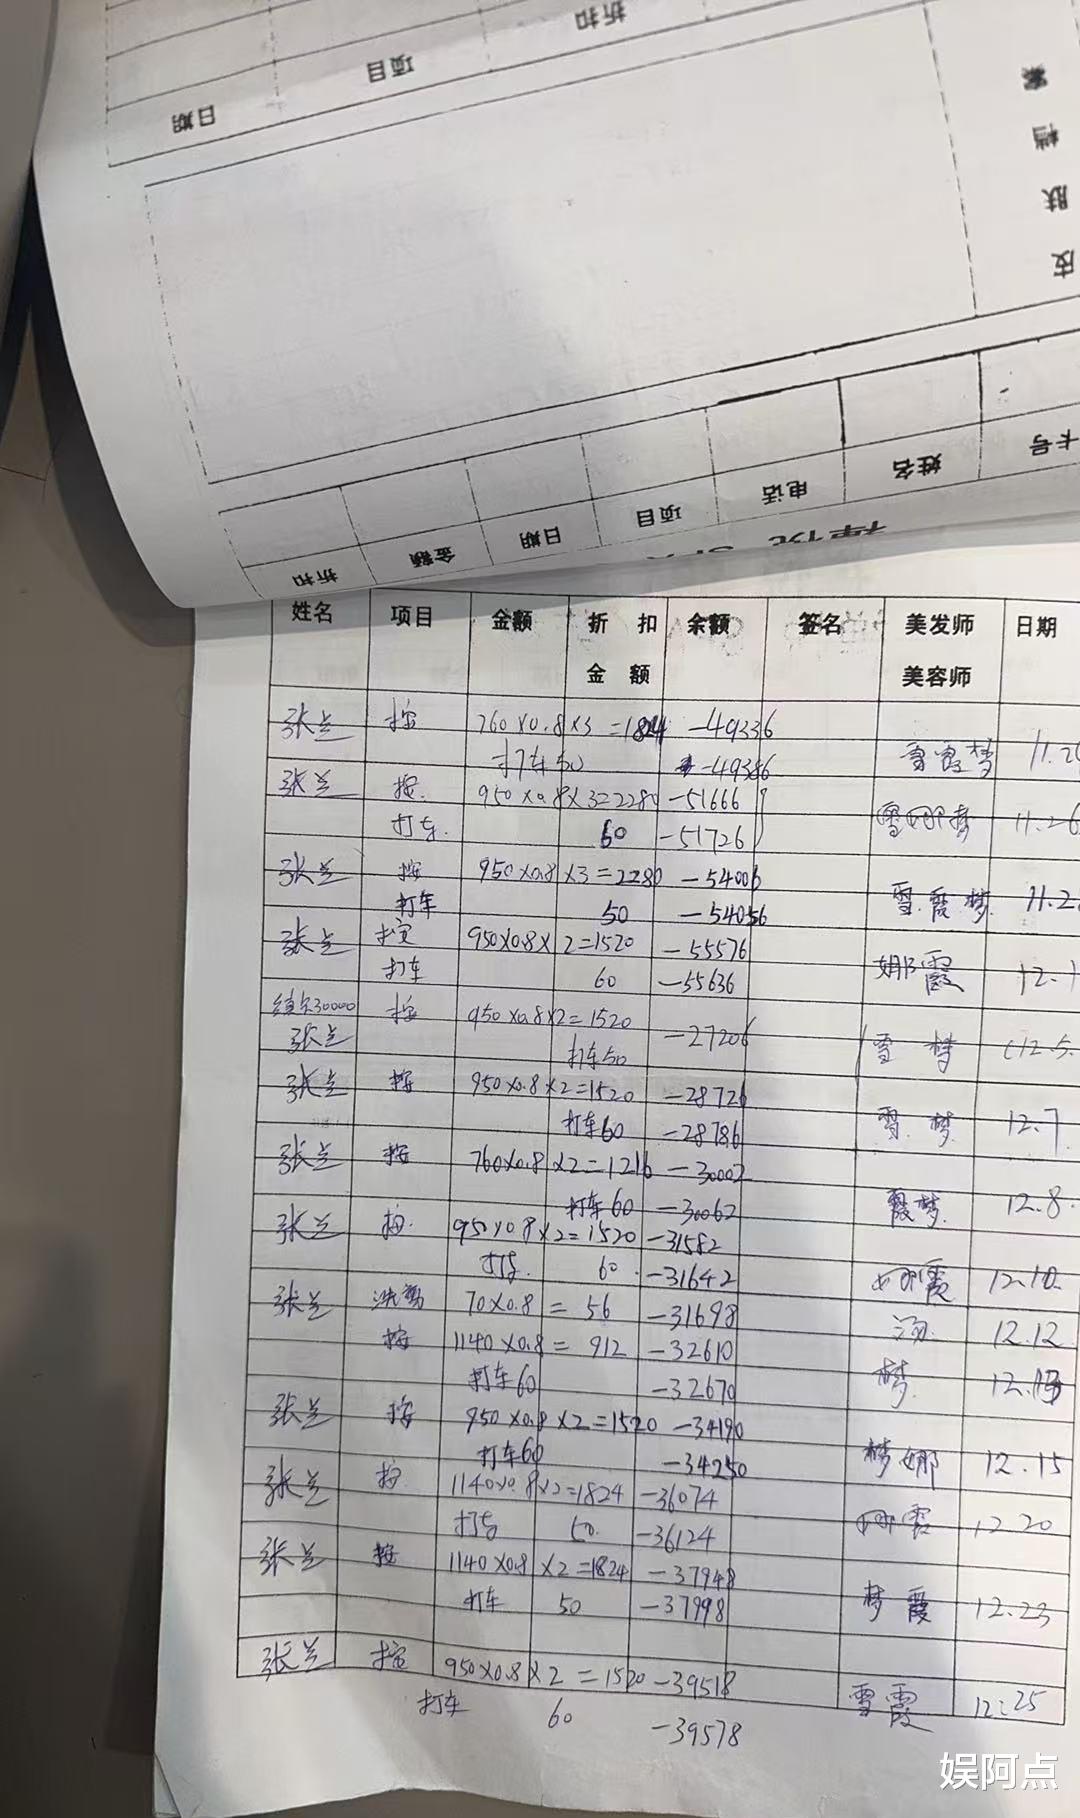 折扣
项目
日期
皮肤档案
卡号 姓名 电话 项目 日期 金额 折扣
姓名 项目 金额 折扣金额 余额 签名 美发师美容师 日期
张兰 按 760×0.8×3=1824 -49336 雪霞梦
打车50 -49386
张兰 按. 950×0.8×3=2280 -51666 雪娜梦 11.26
打车. 60 -51726
张兰 按 950×0.8×3=2280 -54006 雪.霞梦.
打车 50 -54056
张兰 按 950×0.8×2=1520 -55576 娜霞
打车 60 -55636
30000 按 950×0.8×2=1520 -27206 雪梦 12.5.
张兰 打车50
张兰 按 950×0.8×2=1520 -28726 雪.梦. 12.7
打车60 -28786
张兰 按 760×0.8×2=1216 -30002 霞梦. 12.8.
打车60 -30062
张兰 按. 950×0.8×2=1520 -31582 娜霞 12.10.
打车. 60. -31642
张兰 70×0.8=56 -31698 汤. 12.12
按 1140×0.8=912 -32610 梦.
打车60 -32670
张兰 按 950×0.8×2=1520 -34190 梦娜 12.15
打车60 -34250
张兰 按. 1140×0.8×2=1824 -36074 娜霞 12.20
打车 50. -36124
张兰 按 1140×0.8×2=1824 -37948 梦霞 12.23
打车 50 -37998
张兰 按 950×0.8×2=1520 -39518 雪霞 12.25
打车 60 -39578
娱阿点